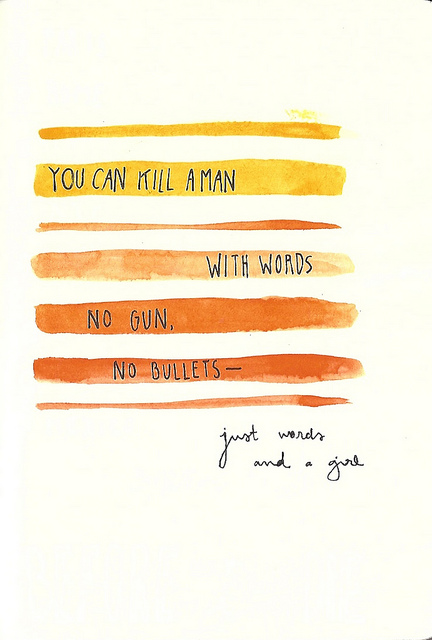 YOU CAN KILL A MAN
WITH WORDS
NO GUN,
NO BULLETS—
just words
and a girl